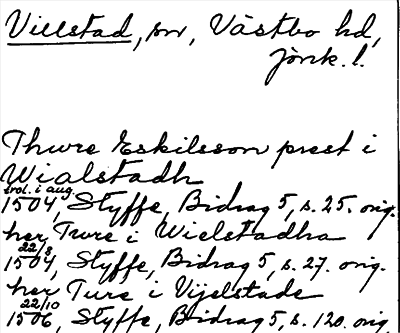 Villstad, sn, Västbo hd,
Jönk. l.
Thure Eskilsson prest i
Wialstadh
trol. i aug.
1504, Styffe, Bidrag 5, s. 25. orig.
her Ture i Wielstadha
22/8
1504, Styffe, Bidrag 5, s. 27. orig.
her Ture i Vijelstade
22/10
1506, Styffe, Bidrag 5, s. 120. orig.